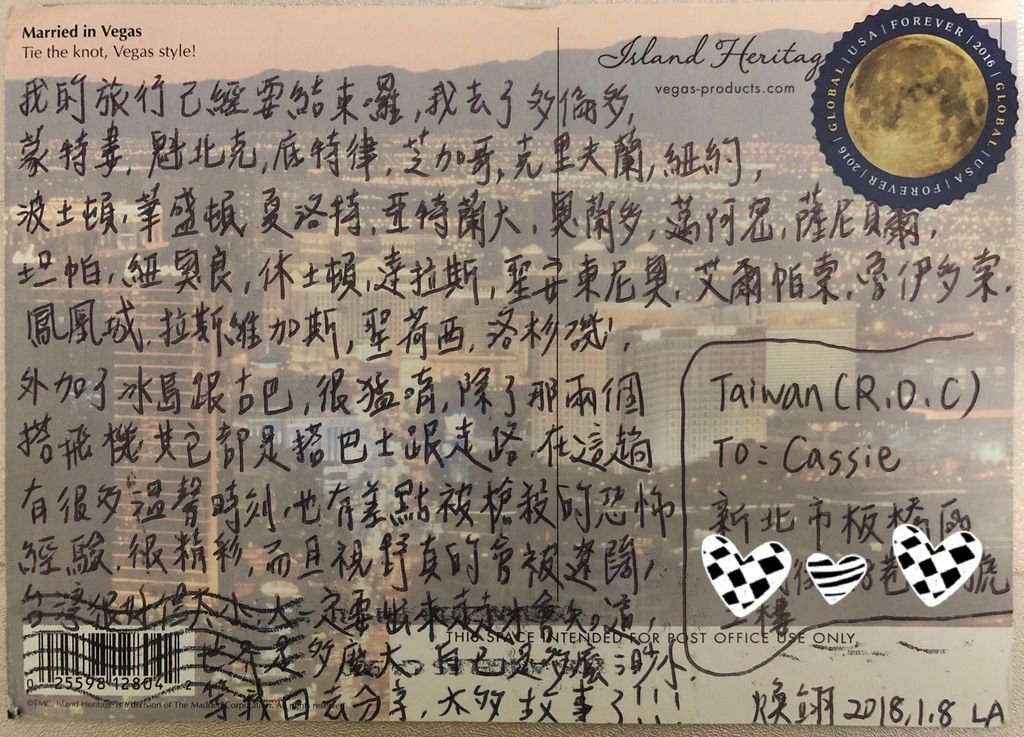 Married in Vegas
Tie the knot, Vegas style!
Island Heritage
vegas-products.com
GLOBAL | USA | FOREVER | 2016 | GLOBAL | USA | FOREVER | 2016
我的旅行已經要結束囉,我去了多倫多,
蒙特婁,魁北克,底特律,芝加哥,克里夫蘭,紐約,
波士頓,華盛頓,夏洛特,亞特蘭大,奧蘭多,邁阿密,薩尼貝爾,
坦帕,紐奧良,休士頓,達拉斯,聖安東尼奧,艾爾帕索,魯伊多索,
鳳凰城,拉斯維加斯,聖荷西,洛杉磯!
外加了冰島跟古巴,很猛唷,除了那兩個
搭飛機,其它都是搭巴士跟走路.在這趟
有很多溫馨時刻,也有差點被槍殺的恐怖
經驗,很精彩,而且視野真的會被遼闊,
台灣很好但太小,一定要出來走走才會知道,
多麼大,自己是多麼渺小.
等我回去分享,太多故事了!!!
Taiwan(R.O.C)
To: Cassie
新北市板橋區
巷 號
樓
THIS SPACE INTENDED FOR POST OFFICE USE ONLY.
0 25598 12804 2
©TMC, Island Heritage is a division of The Madden Corporation. All rights reserved.
煥翊 2018.1.8 LA